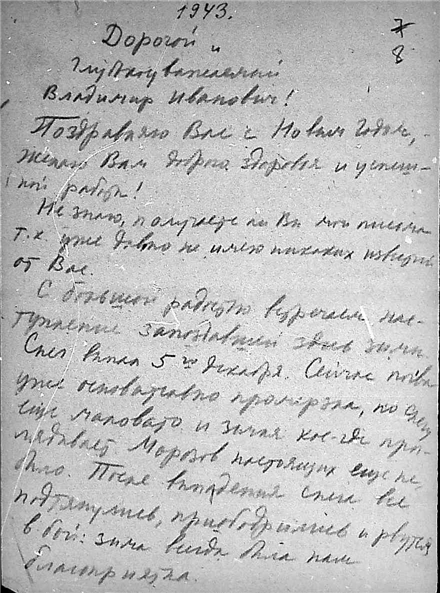 1943.
7
8
Дорогой и
глубокоуважаемый
Владимир Иванович!
Поздравляю Вас с Новым Годом, -
желаю Вам доброго здоровья и успеш-
ной работы!
Не знаю, получаете ли Вы мои письма
т.к. уже давно не имею никаких известий
от Вас.
С большой радостью встречаем нас-
тупление запоздавшей здесь зимы.
Снег выпал 5го декабря. Сейчас почва
уже основательно промерзла, но снегу
ещё маловато и земля кое-где прог-
лядывает. Морозов настоящих еще не
было. После выпадения снега все
подтянулись, приободрились и рвутся
в бой: зима всегда была нам
благоприятна.